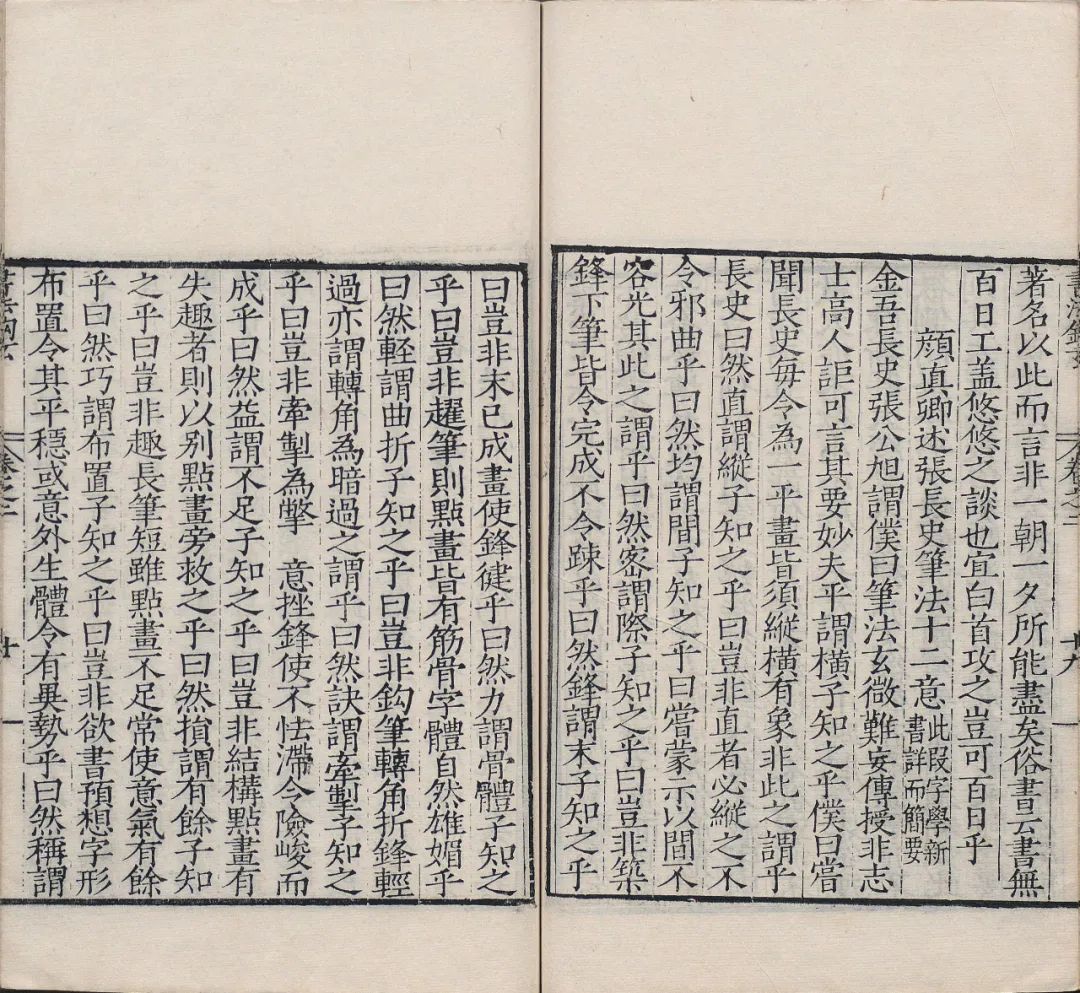 著名以此而言非一朝一夕所能盡矣俗書云書無
百日工盖悠悠之談也宜白首攻之豈可百日乎
顔真卿述張長史筆法十二意此叚字學新書詳而簡要
金吾長史張公旭謂僕曰筆法玄微難妄傳授非志
士高人詎可言其要妙夫平謂橫子知之乎僕曰嘗
聞長史每令為一平畫皆須縱橫有象非此之謂乎
長史曰然直謂縱子知之乎曰豈非直者必縱之不
令邪曲乎曰然均謂間子知之乎曰嘗蒙示以間不
容光其此之謂乎曰然密謂際子知之乎曰豈非築
鋒下筆皆令完成不令踈乎曰然鋒謂末子知之乎
曰豈非末已成畫使鋒健乎曰然力謂骨體子知之
乎曰豈非趯筆則點畫皆有筋骨字體自然雄媚乎
曰然軽謂曲折子知之乎曰豈非鈎筆轉角折鋒輕
過亦謂轉角為暗過之謂乎曰然訣謂牽掣子知之
乎曰豈非牽掣為撆 意挫鋒使不怯滯令險峻而
成乎曰然益謂不足子知之乎曰豈非結構點畫有
失趣者則以别點畫旁救之乎曰然損謂有餘子知
之乎曰豈非趣長筆短雖點畫不足常使意氣有餘
乎曰然巧謂布置子知之乎曰豈非欲書預想字形
布置令其平穩或意外生體令有異勢乎曰然稱謂